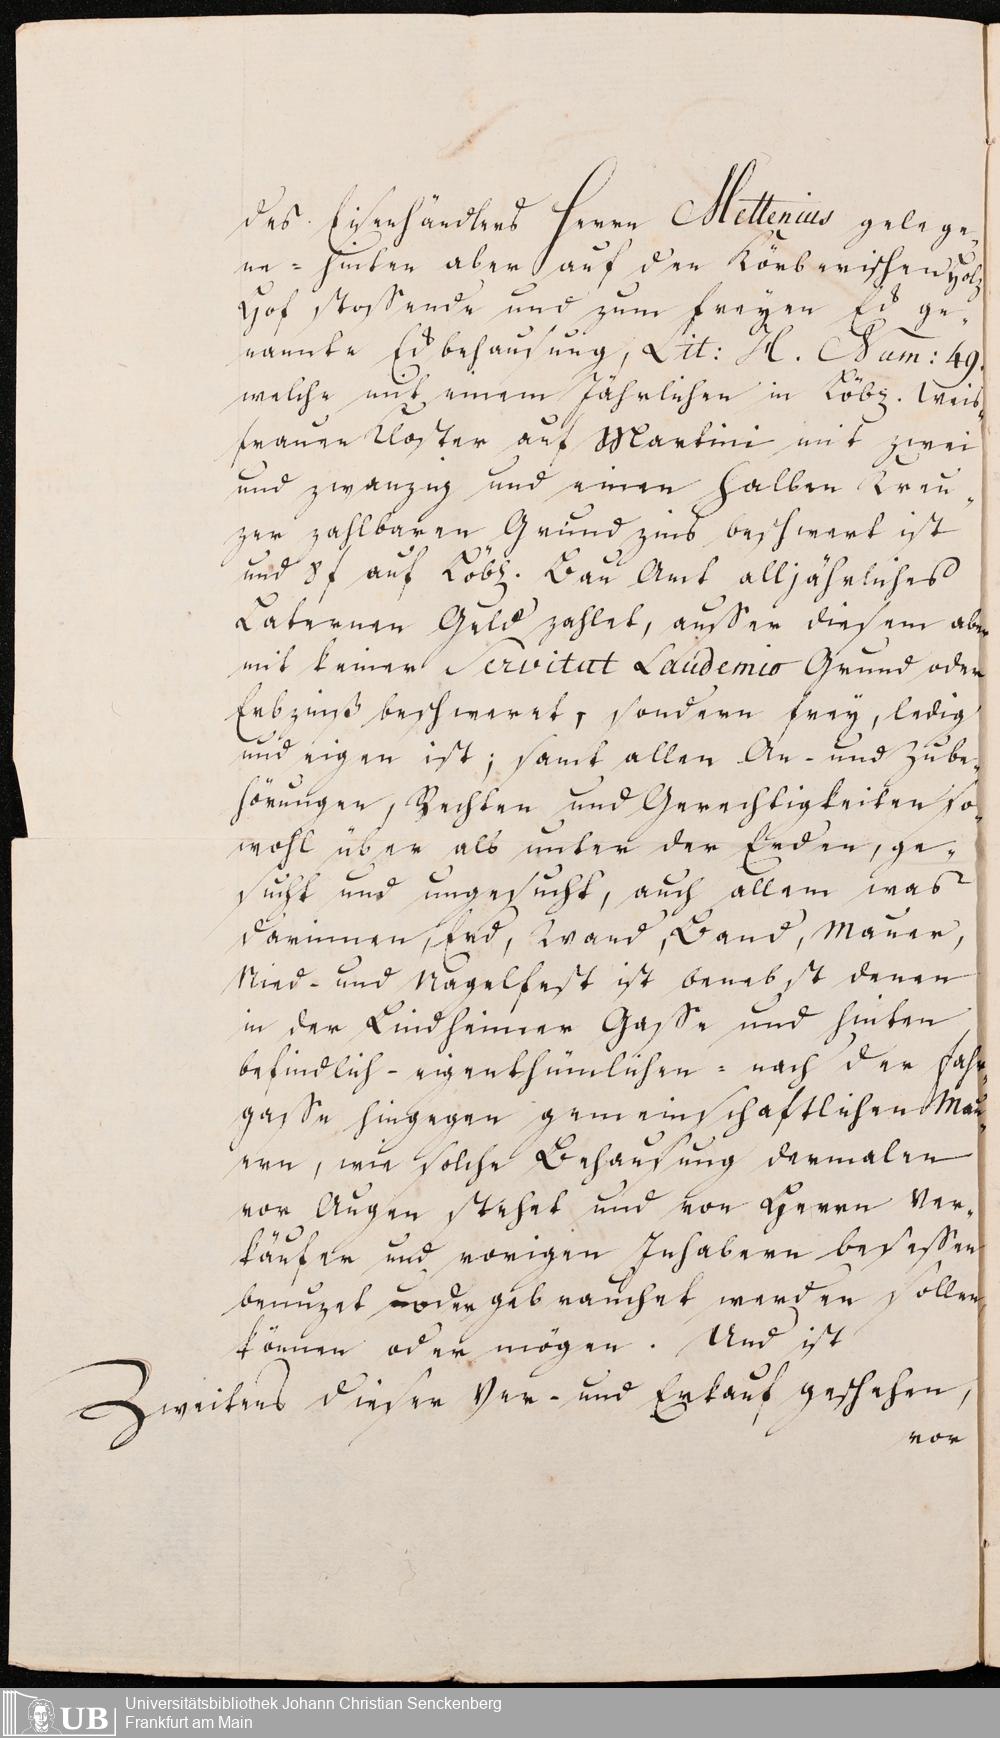 des Eisenhändlers Herrn Mettenius gelege-
ne - hinten aber auf den Körberischen Holz
Hof stossende und zum freyen Eck ge-
nannte Eckbehausung, Lit: H. Num: 49.
welche mit einem Jährlichen in Löbl. Weis-
frauen Kloster auf Martini mit zwei
und zwanzig und einen halben Kreu-
zer zahlbaren Grundzins beschwert ist
und 8 f auf Löbl. Bau Amt alljährliches
Laternen Geld zahlet, ausser diesem aber
mit keiner Servitut Laudemio Grund oder
Erbzinß beschweret, sondern frey, ledig
und eigen ist; samt allen An- und Zube-
hörungen, Rechten und Gerechtigkeiten so-
wohl über als unter der Erden, ge-
sucht und ungesucht, auch allem was
darinnen, Erd, Wand, Band, Mauer,
Nied- und Nagelfest ist benebst denen
in der Lindheimer Gasse und hinten
befindlich - eigenthümlichen - nach der Fahr-
gasse hingegen gemeinschaftlichen Mau-
ern, wie solche Behausung dermalen
vor Augen stehet und von Herrn Ver-
käufer und vorigen Inhabern besessen
benuzet oder gebrauchet werden sollen
können oder mögen. Und ist
Zweitens dieser Ver- und Erkauf geschehen,
vor
UB Universitätsbibliothek Johann Christian Senckenberg
Frankfurt am Main